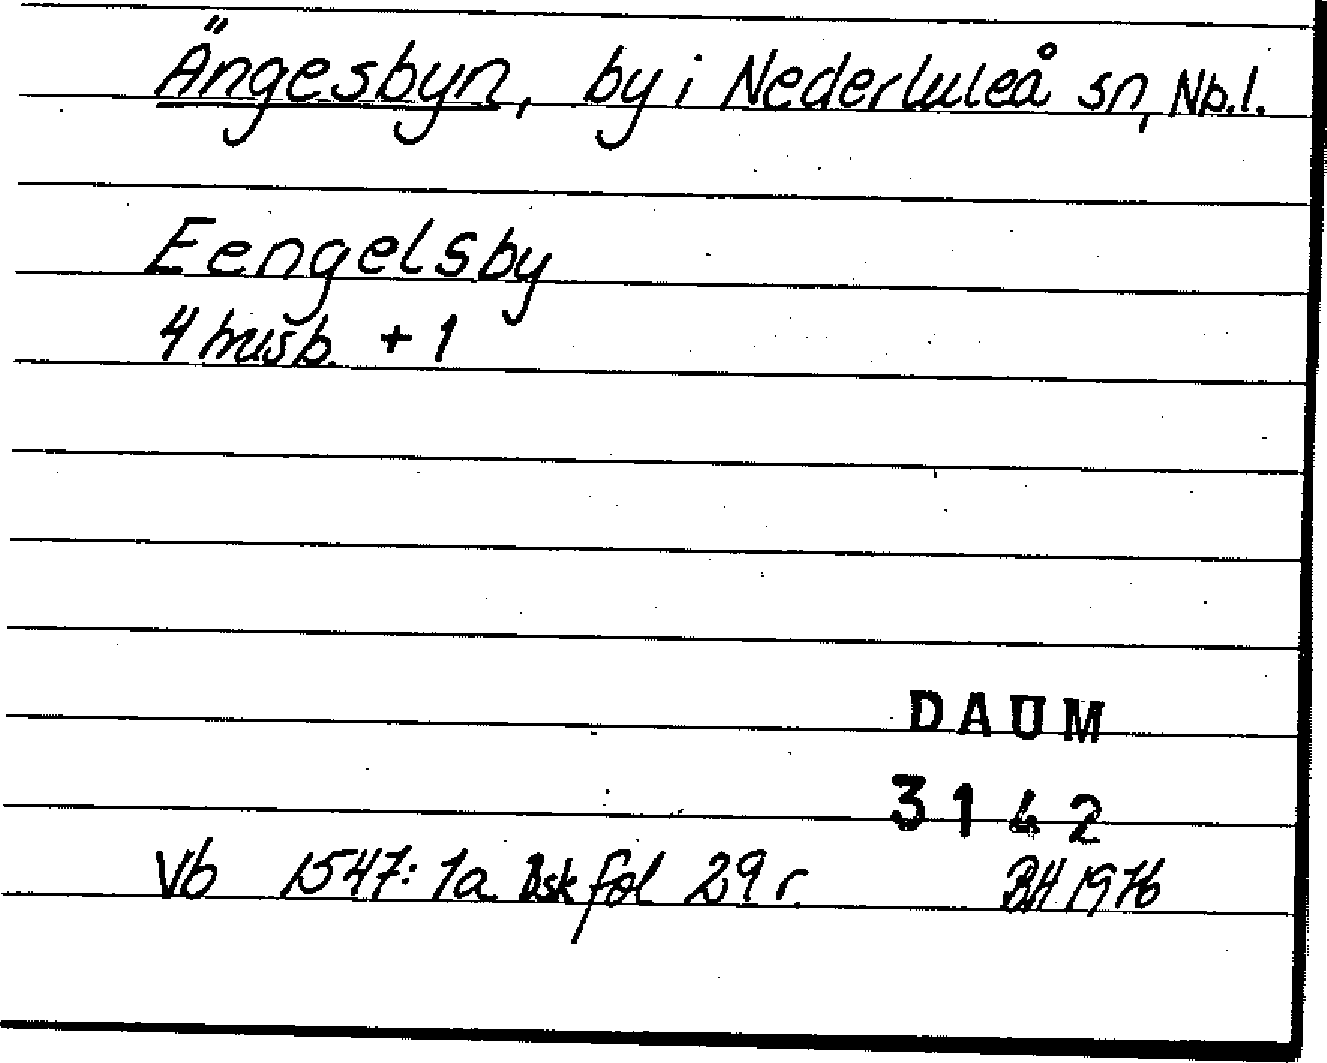 Ängesbyn, by i Nederluleå sn, Nb.l.
Eengelsby
4 husb. + 1
DAUM
3142
Vb 1547:1a Dsk fol 29 r. BH 1976